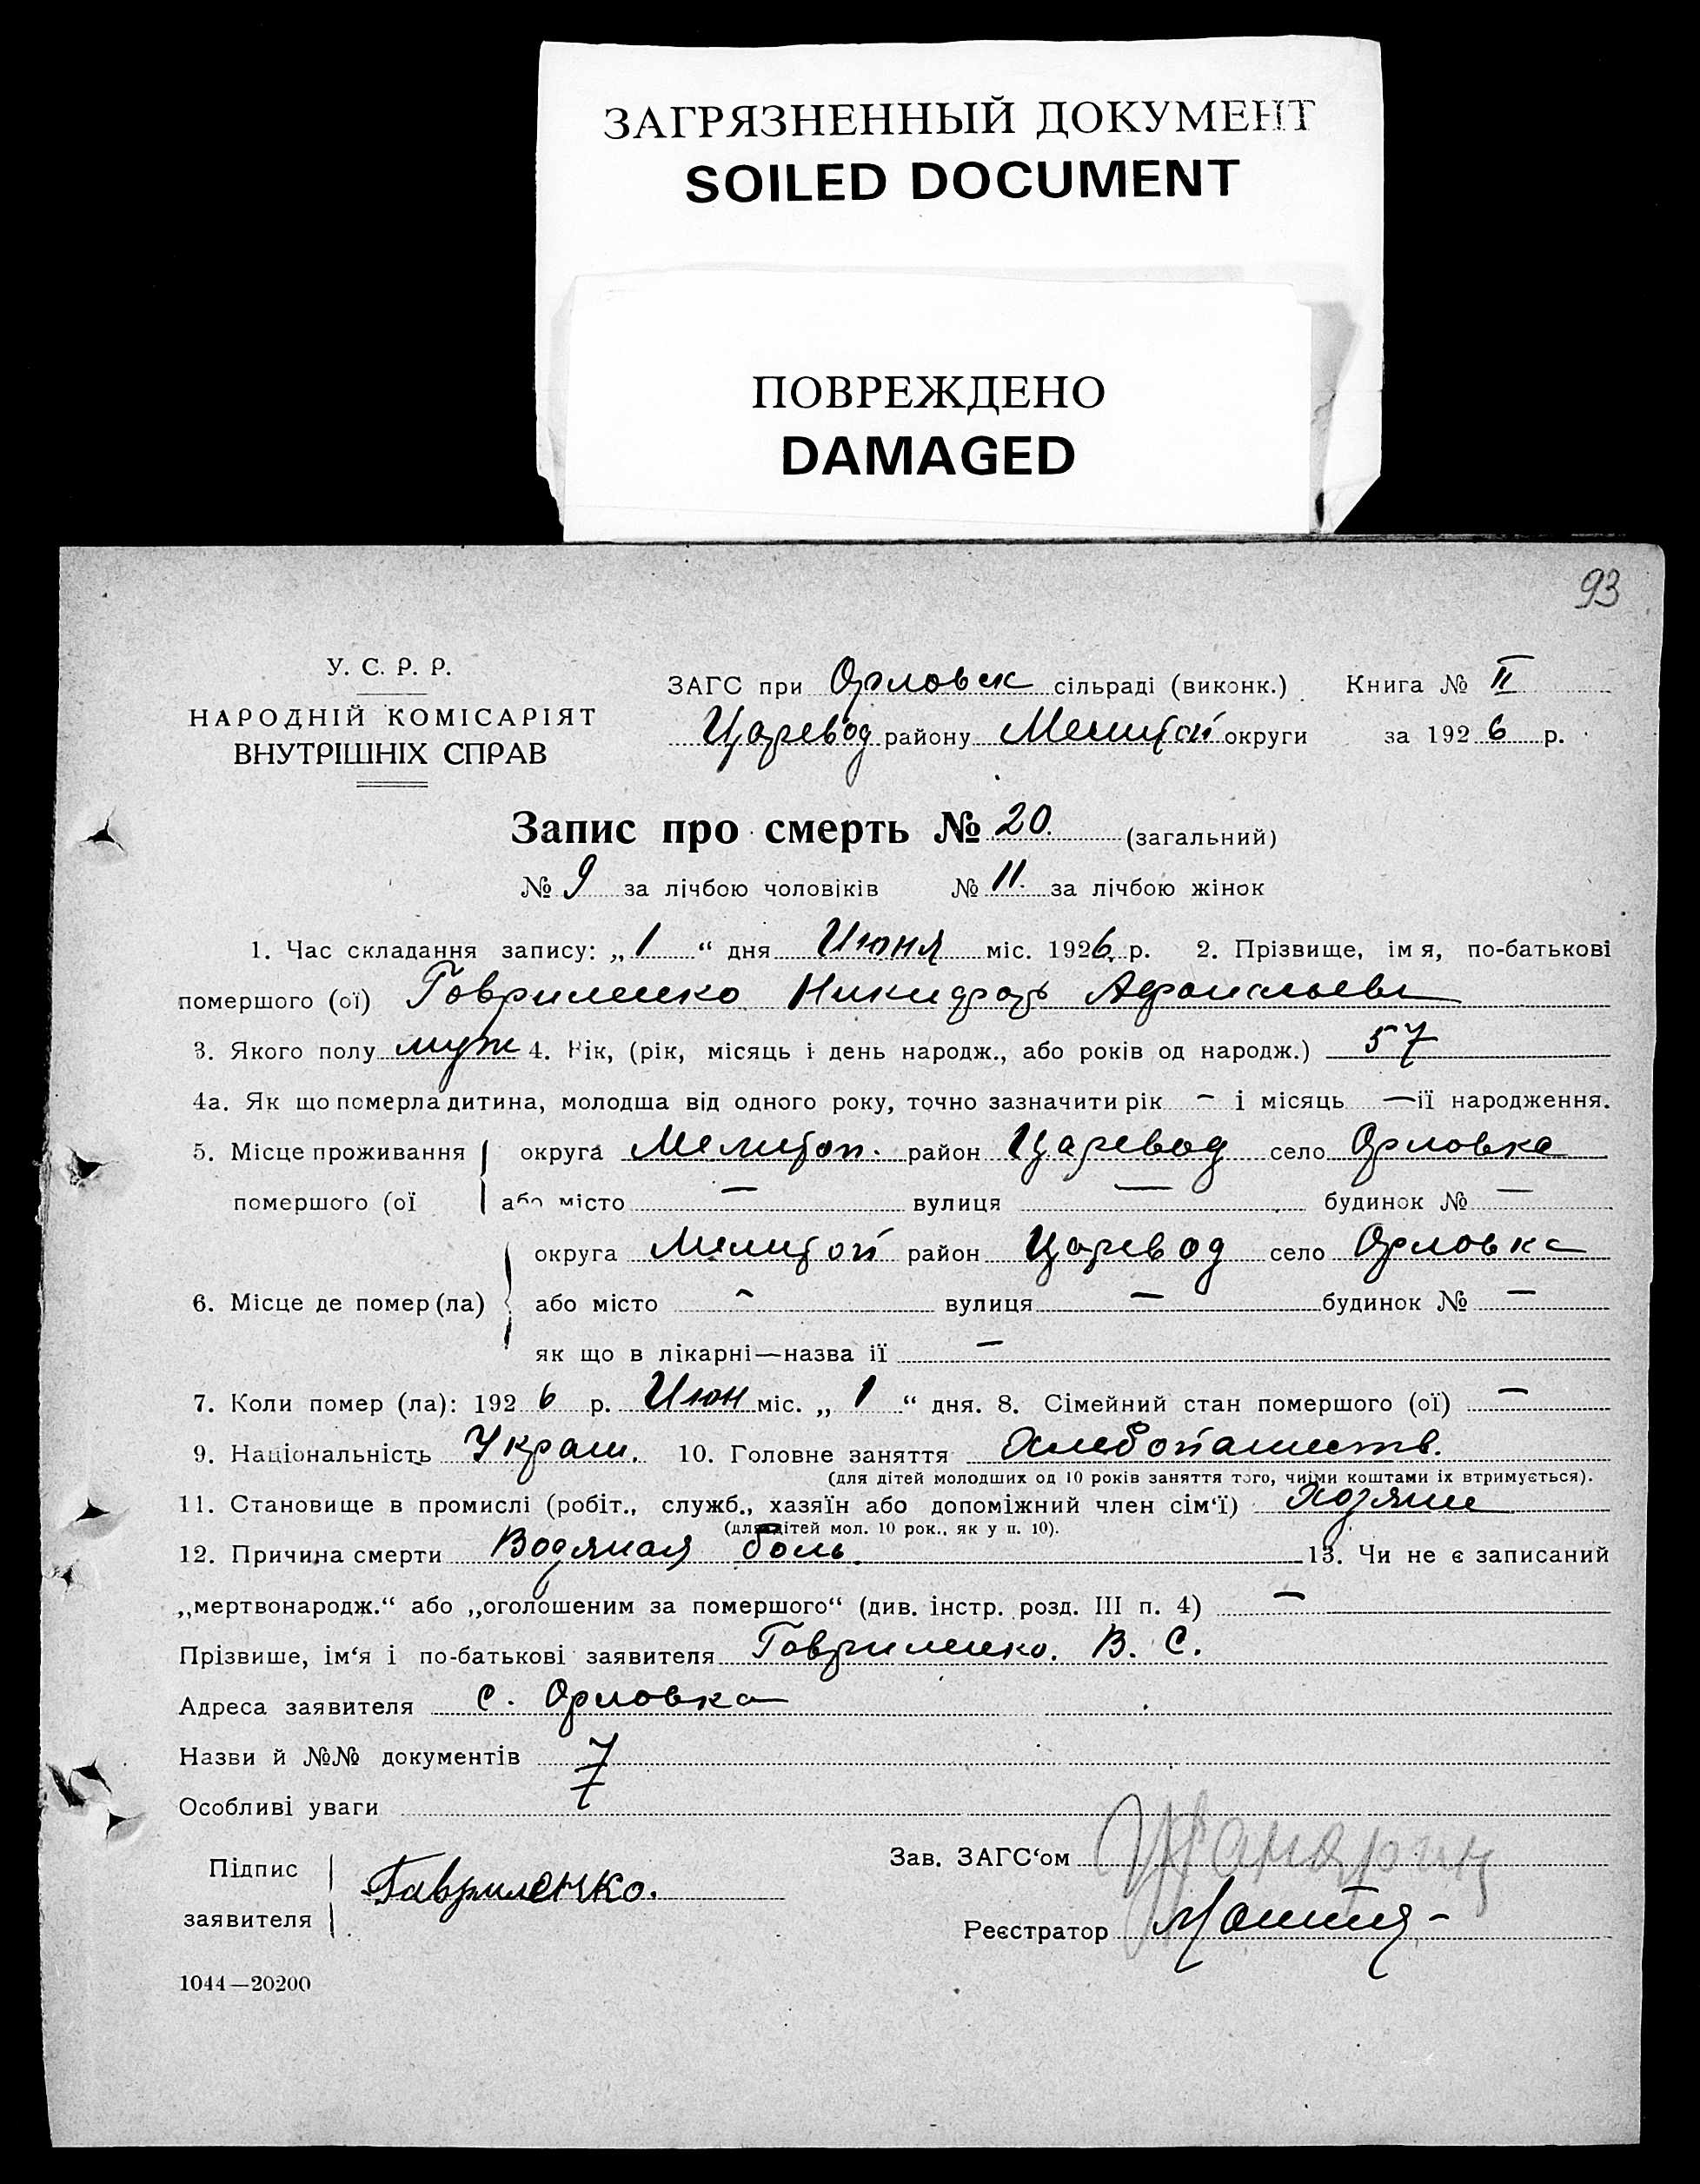 ЗАГРЯЗНЕННЫЙ ДОКУМЕНТ
SOILED DOCUMENT
ПОВРЕЖДЕНО
DAMAGED
93
У. С. Р. Р.
НАРОДНІЙ КОМІСАРІЯТ
ВНУТРІШНІХ СПРАВ
ЗАГС при Орловск сільраді (виконк.) Книга № II
Царевод району Мелитоп округи за 1926 р.
Запис про смерть № 20. (загальний)
№ 9 за лічбою чоловіків № 11. за лічбою жінок
1. Час складання запису: „1“ дня Июня міс. 1926 р. 2. Прізвище, імя, по-батькові
помершого (ої) Гавриленко Никифор
3. Якого полу муж 4. Рік, (рік, місяць і день народж., або років од народж.) 57
4а. Як що померла дитина, молодша від одного року, точно зазначити рік — і місяць — її народження.
5. Місце проживання округа Мелитоп. район Царевод село Орловка
помершого (ої або місто — вулиця — будинок № —
округа Мелитоп район Царевод село Орловка
6. Місце де помер (ла) або місто — вулиця — будинок № —
як що в лікарні—назва її —
7. Коли помер (ла): 1926 р. Июн міс. „1“ дня. 8. Сімейний стан помершого (ої) —
9. Національність Украин. 10. Головне заняття Хлебопашеств.
(для дітей молодших од 10 років заняття того, чиїми коштами іх втримується).
11. Становище в промислі (робіт., служб., хазяїн або допоміжний член сім‘ї) Хозяин
(для дітей мол. 10 рок., як у п. 10).
12. Причина смерти Водяная боль. 13. Чи не є записаний
„мертвонародж.“ або „оголошеним за помершого“ (див. інстр. розд. III п. 4) —
Прізвише, ім‘я і по-батькові заявителя Гавриленко. В. С.
Адреса заявителя с. Орловка
Назви й №№ документів 7
Особливі уваги
Підпис
заявителя Гавриленко.
Зав. ЗАГС‘ом
Реєстратор
1044—20200